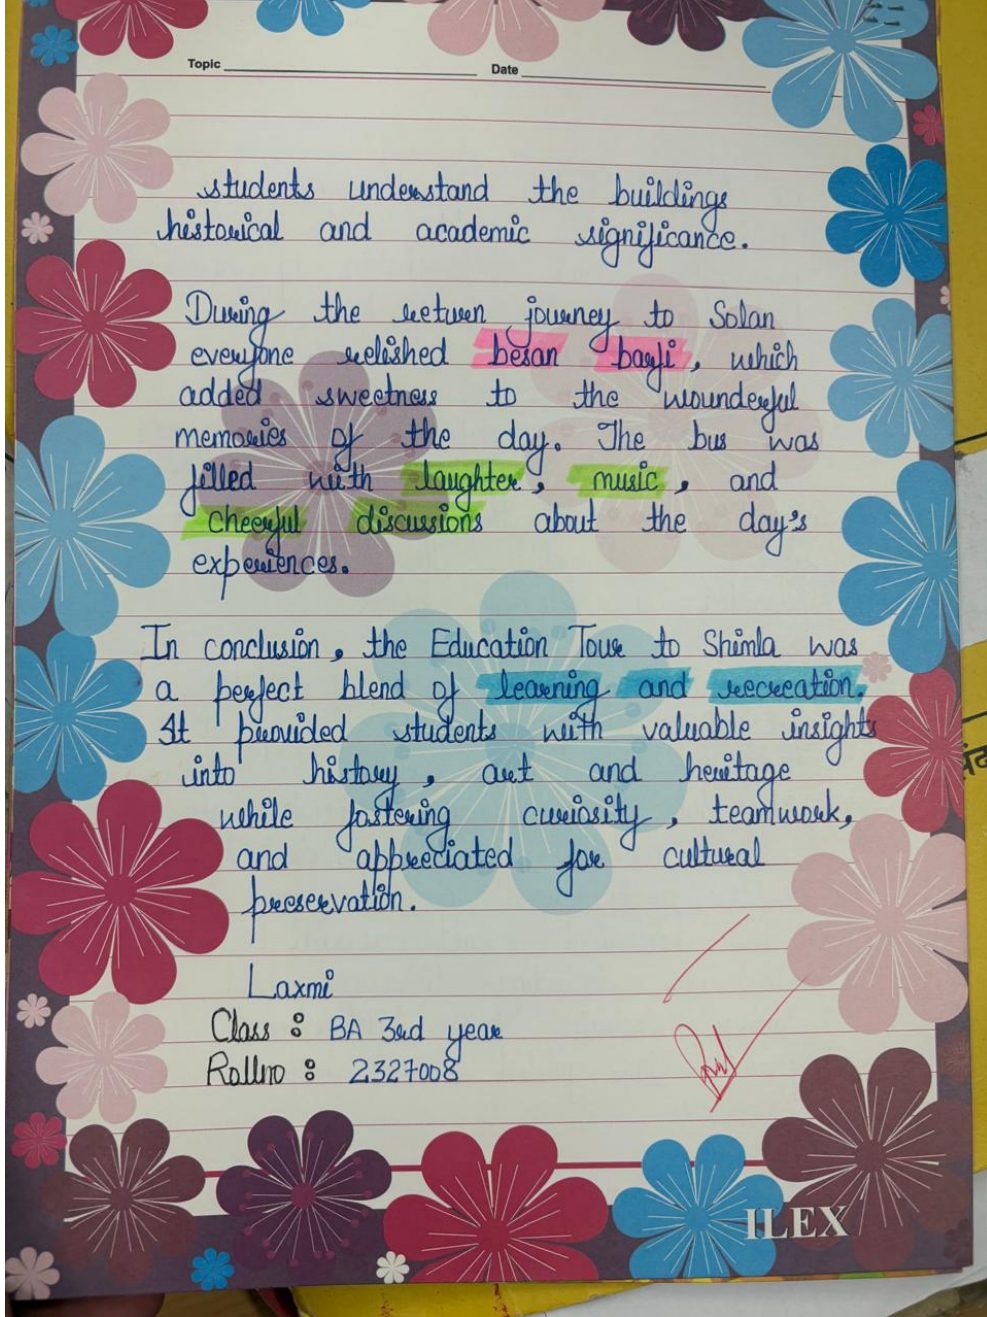 Topic
Date
students understand the buildings
historical and academic significance.
During the return journey to Solan
everyone relished besan barfi, which
added sweetness to the wounderful
memories of the day. The bus was
filled with laughter, music, and
cheerful discussions about the day's
experiences.
In conclusion, the Education Tour to Shimla was
a perfect blend of learning and recreation.
It provided students with valuable insights
into history, art and heritage
while fostering curiosity, teamwork,
and appreciated for cultural
preservation.
Laxmi
Class : BA 3rd year
Rollno : 2327008
ILEX